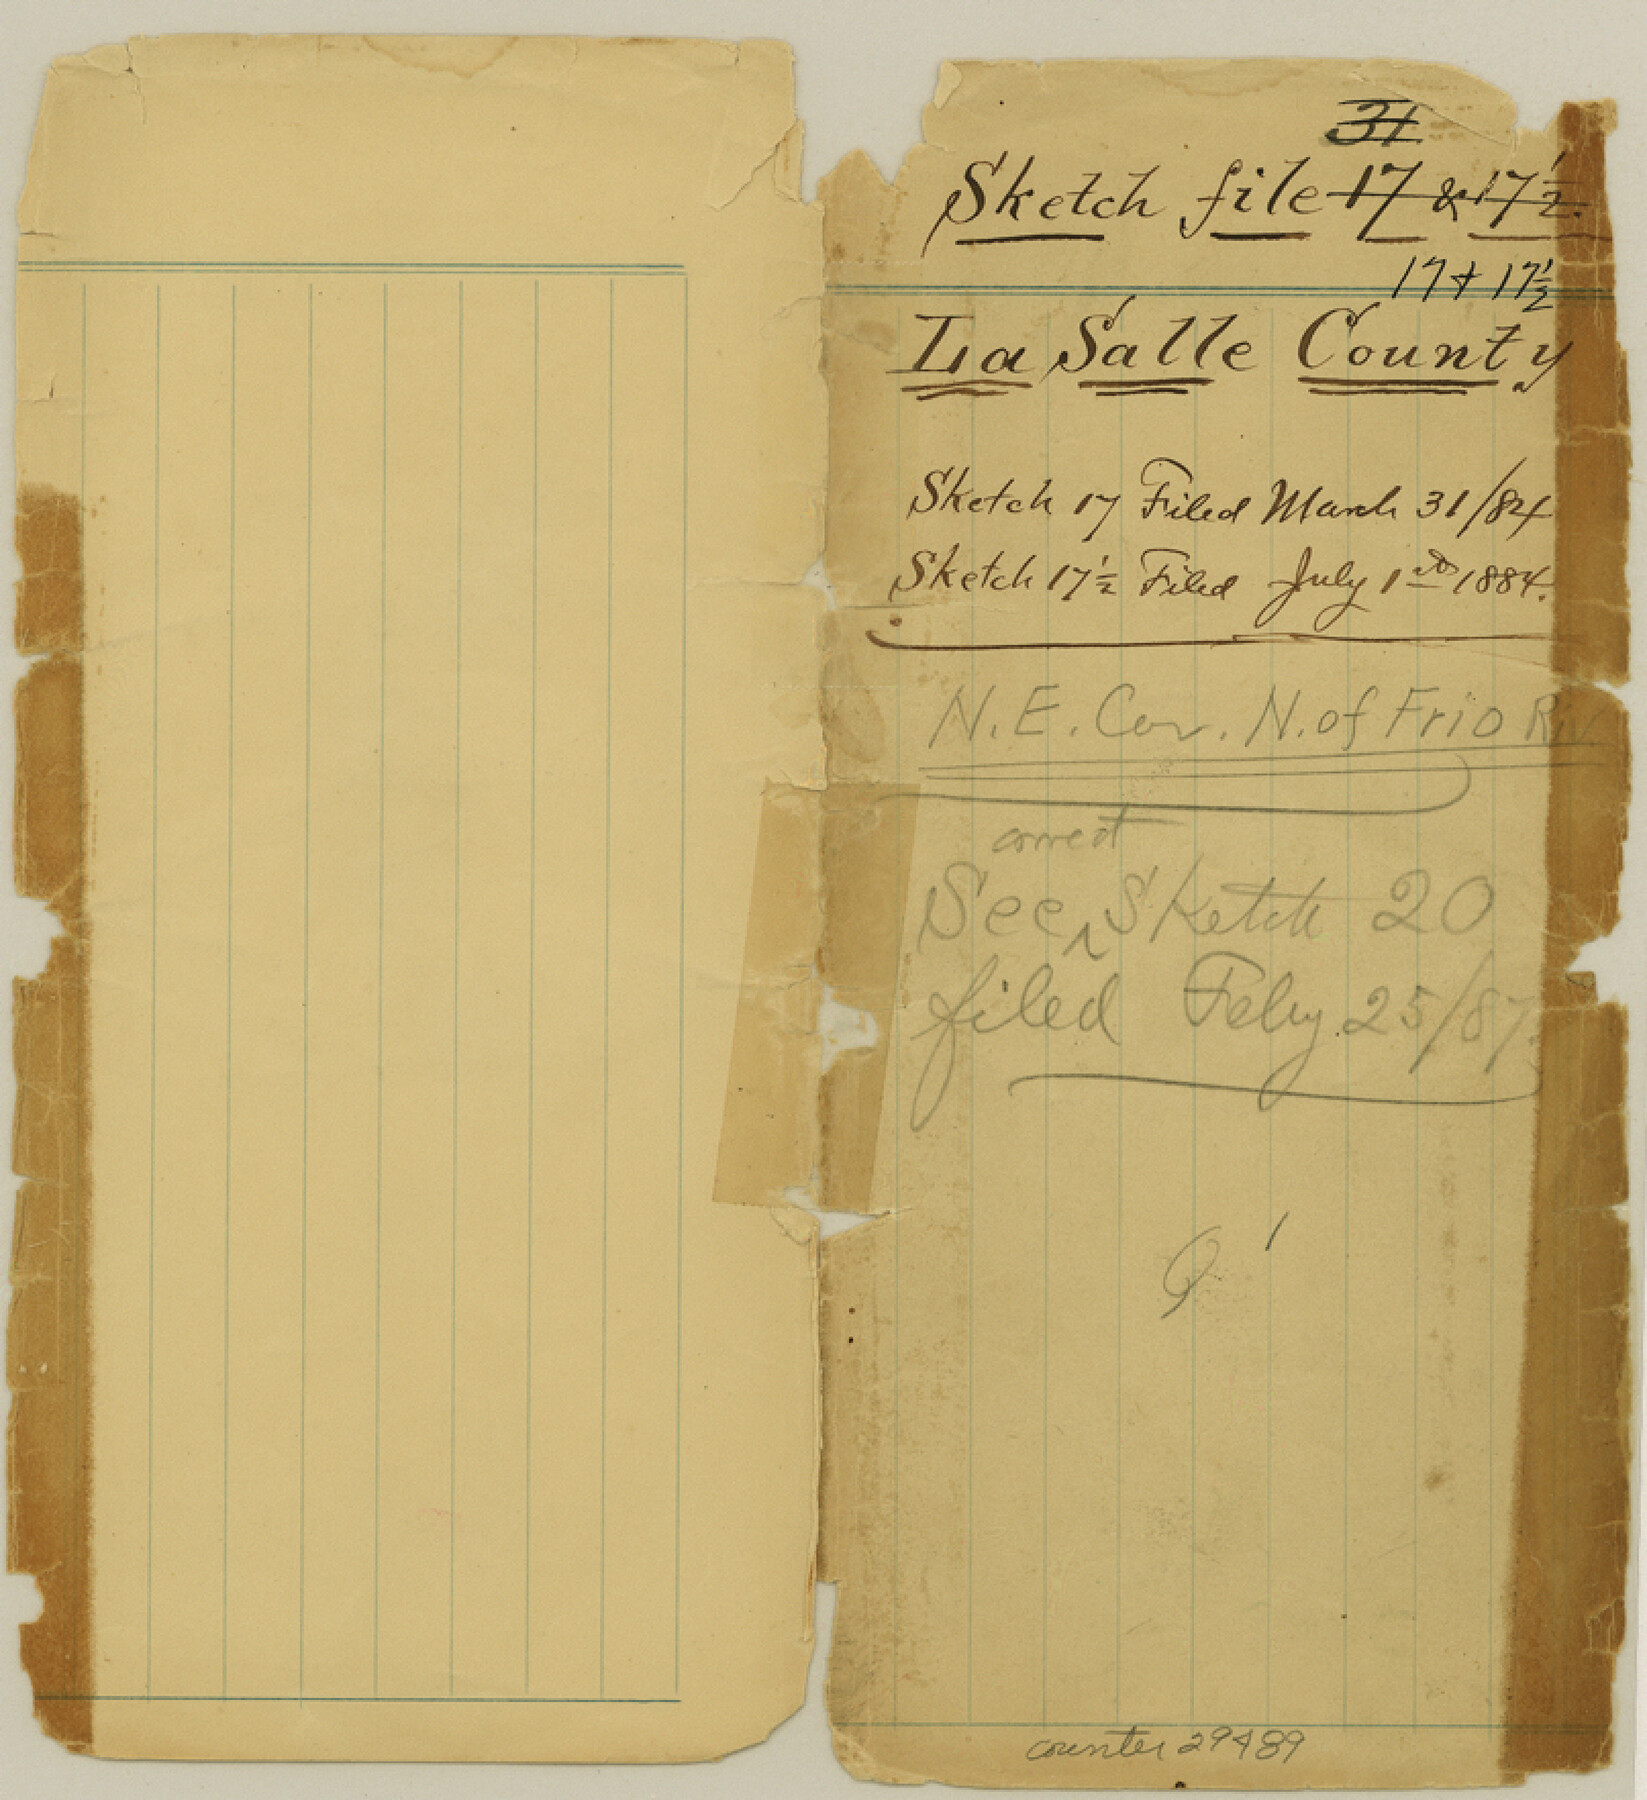 31
Sketch file 17 & 17½
17 & 17½
La Salle County
Sketch 17 Filed March 31/84
Sketch 17½ Filed July 1st 1884.
N.E. Cor. N. of Frio Riv
correct
See ^ Sketch 20
filed Feby 25/87
counter 29489